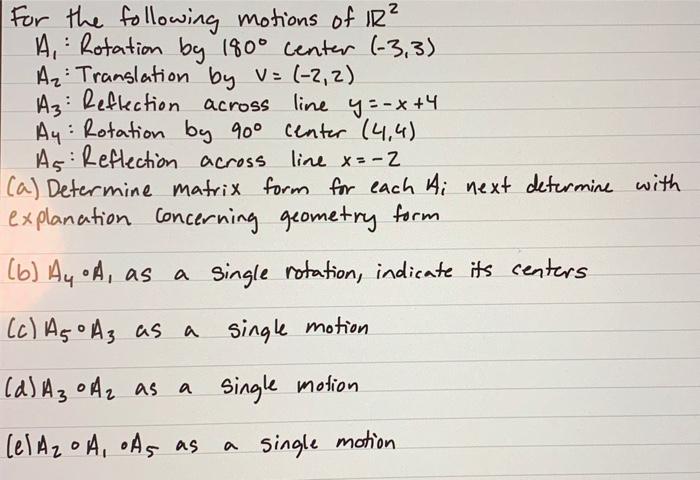 For the following motions of ℝ²
A₁: Rotation by 180° center (-3,3)
A₂: Translation by V = (-2,2)
A₃: Reflection across line y = -x +4
A₄: Rotation by 90° center (4,4)
A₅: Reflection across line x = -2
(a) Determine matrix form for each Aᵢ next determine with
explanation concerning geometry form
(b) A₄ ∘ A₁ as a single rotation, indicate its centers
(c) A₅ ∘ A₃ as a single motion
(d) A₃ ∘ A₂ as a single motion
(e) A₂ ∘ A₁ ∘ A₅ as a single motion